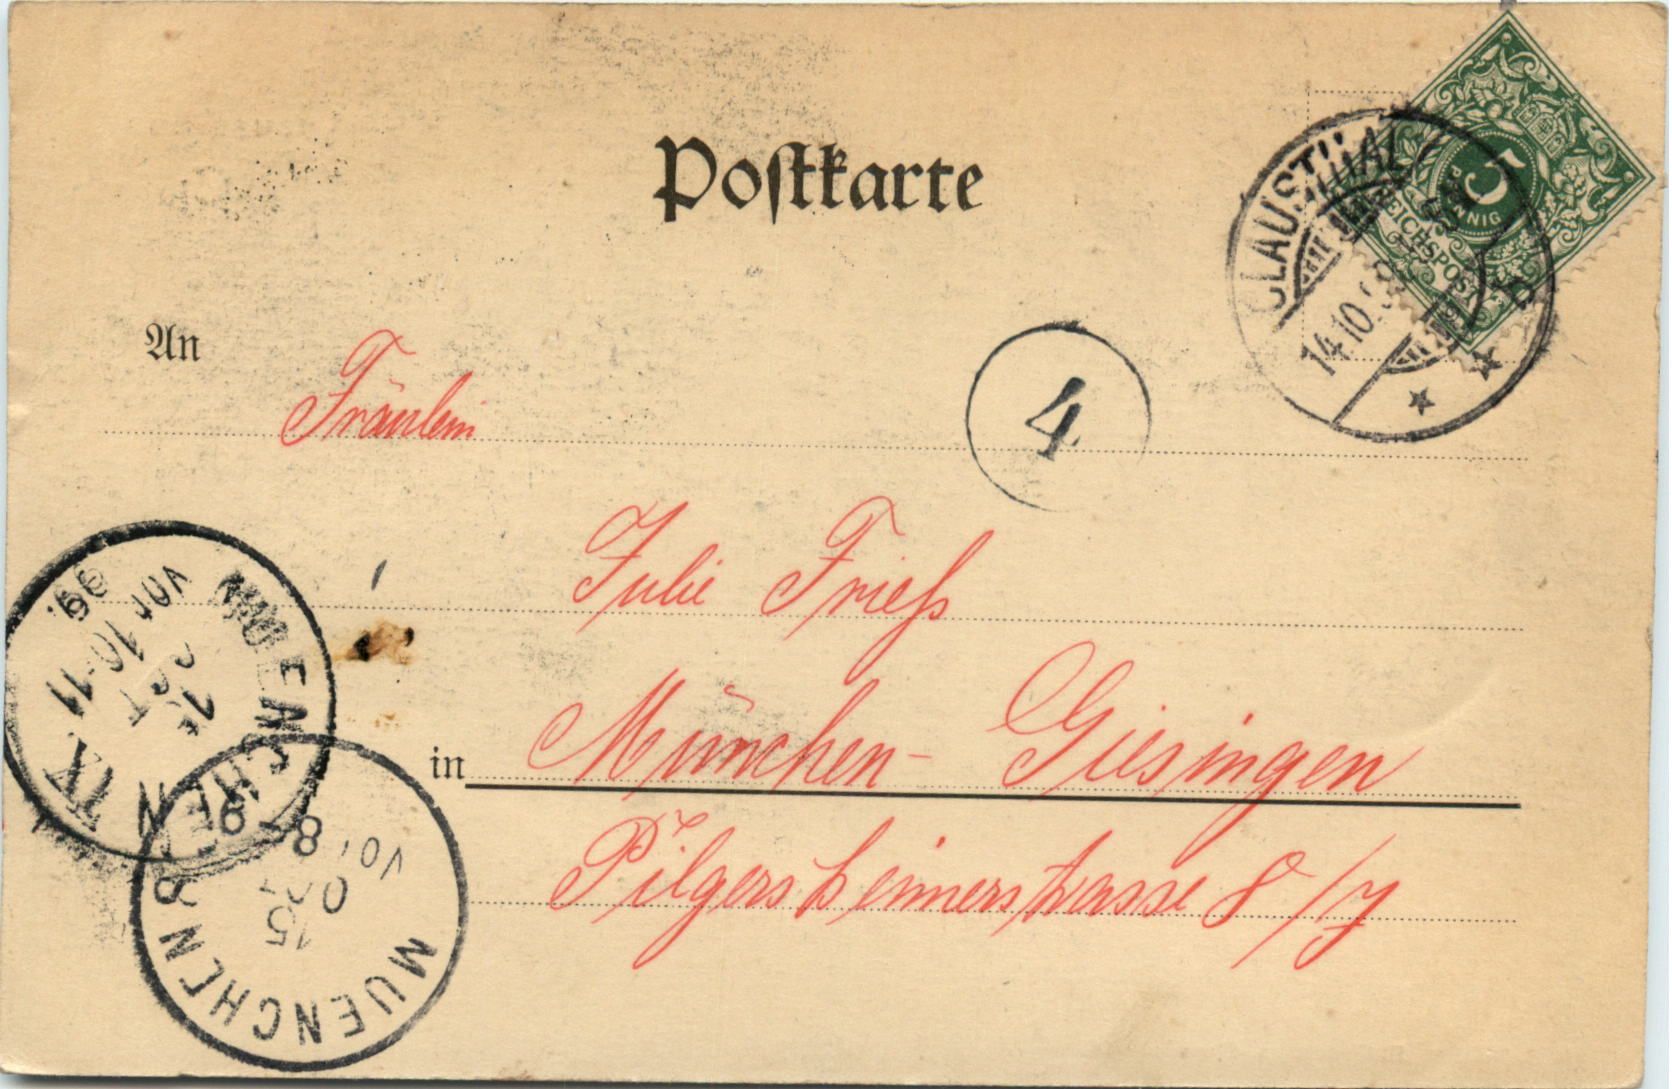 Postkarte
CLAUSTHAL
14.10.98
REICHSPOST
5
PFENNIG
An
Fräulein
4
Julie Frieß
in München-Giesingen
Pilgersheimerstrasse 8/I
MUENCHEN IX
OCT
Vor 10-11
99.
MUENCHEN 8
15
OCT
Vor 8-9